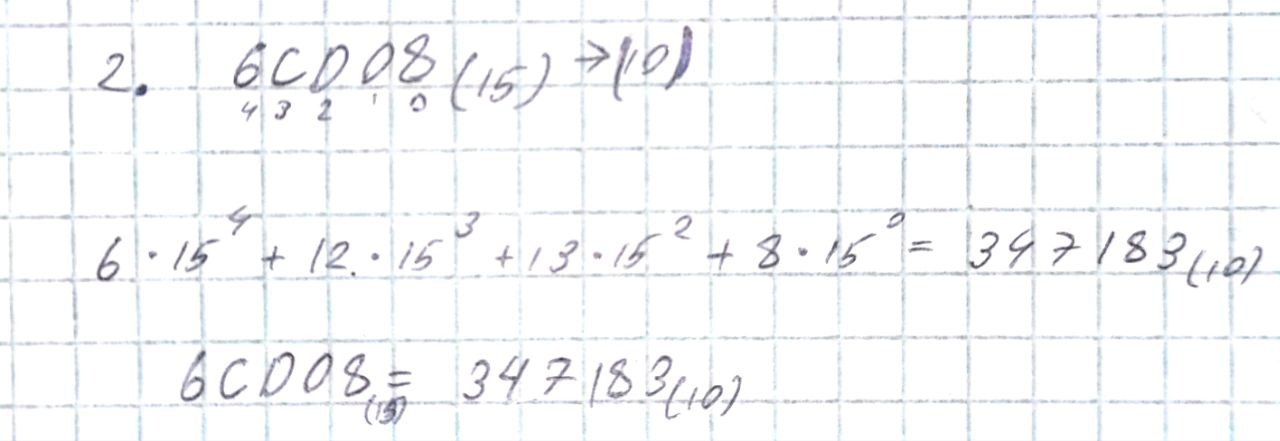 2. 6CD08(15) → (10)
4 3 2 1 0
6 · 15⁴ + 12 · 15³ + 13 · 15² + 8 · 15⁰ = 347183(10)
6CD08(15) = 347183(10)